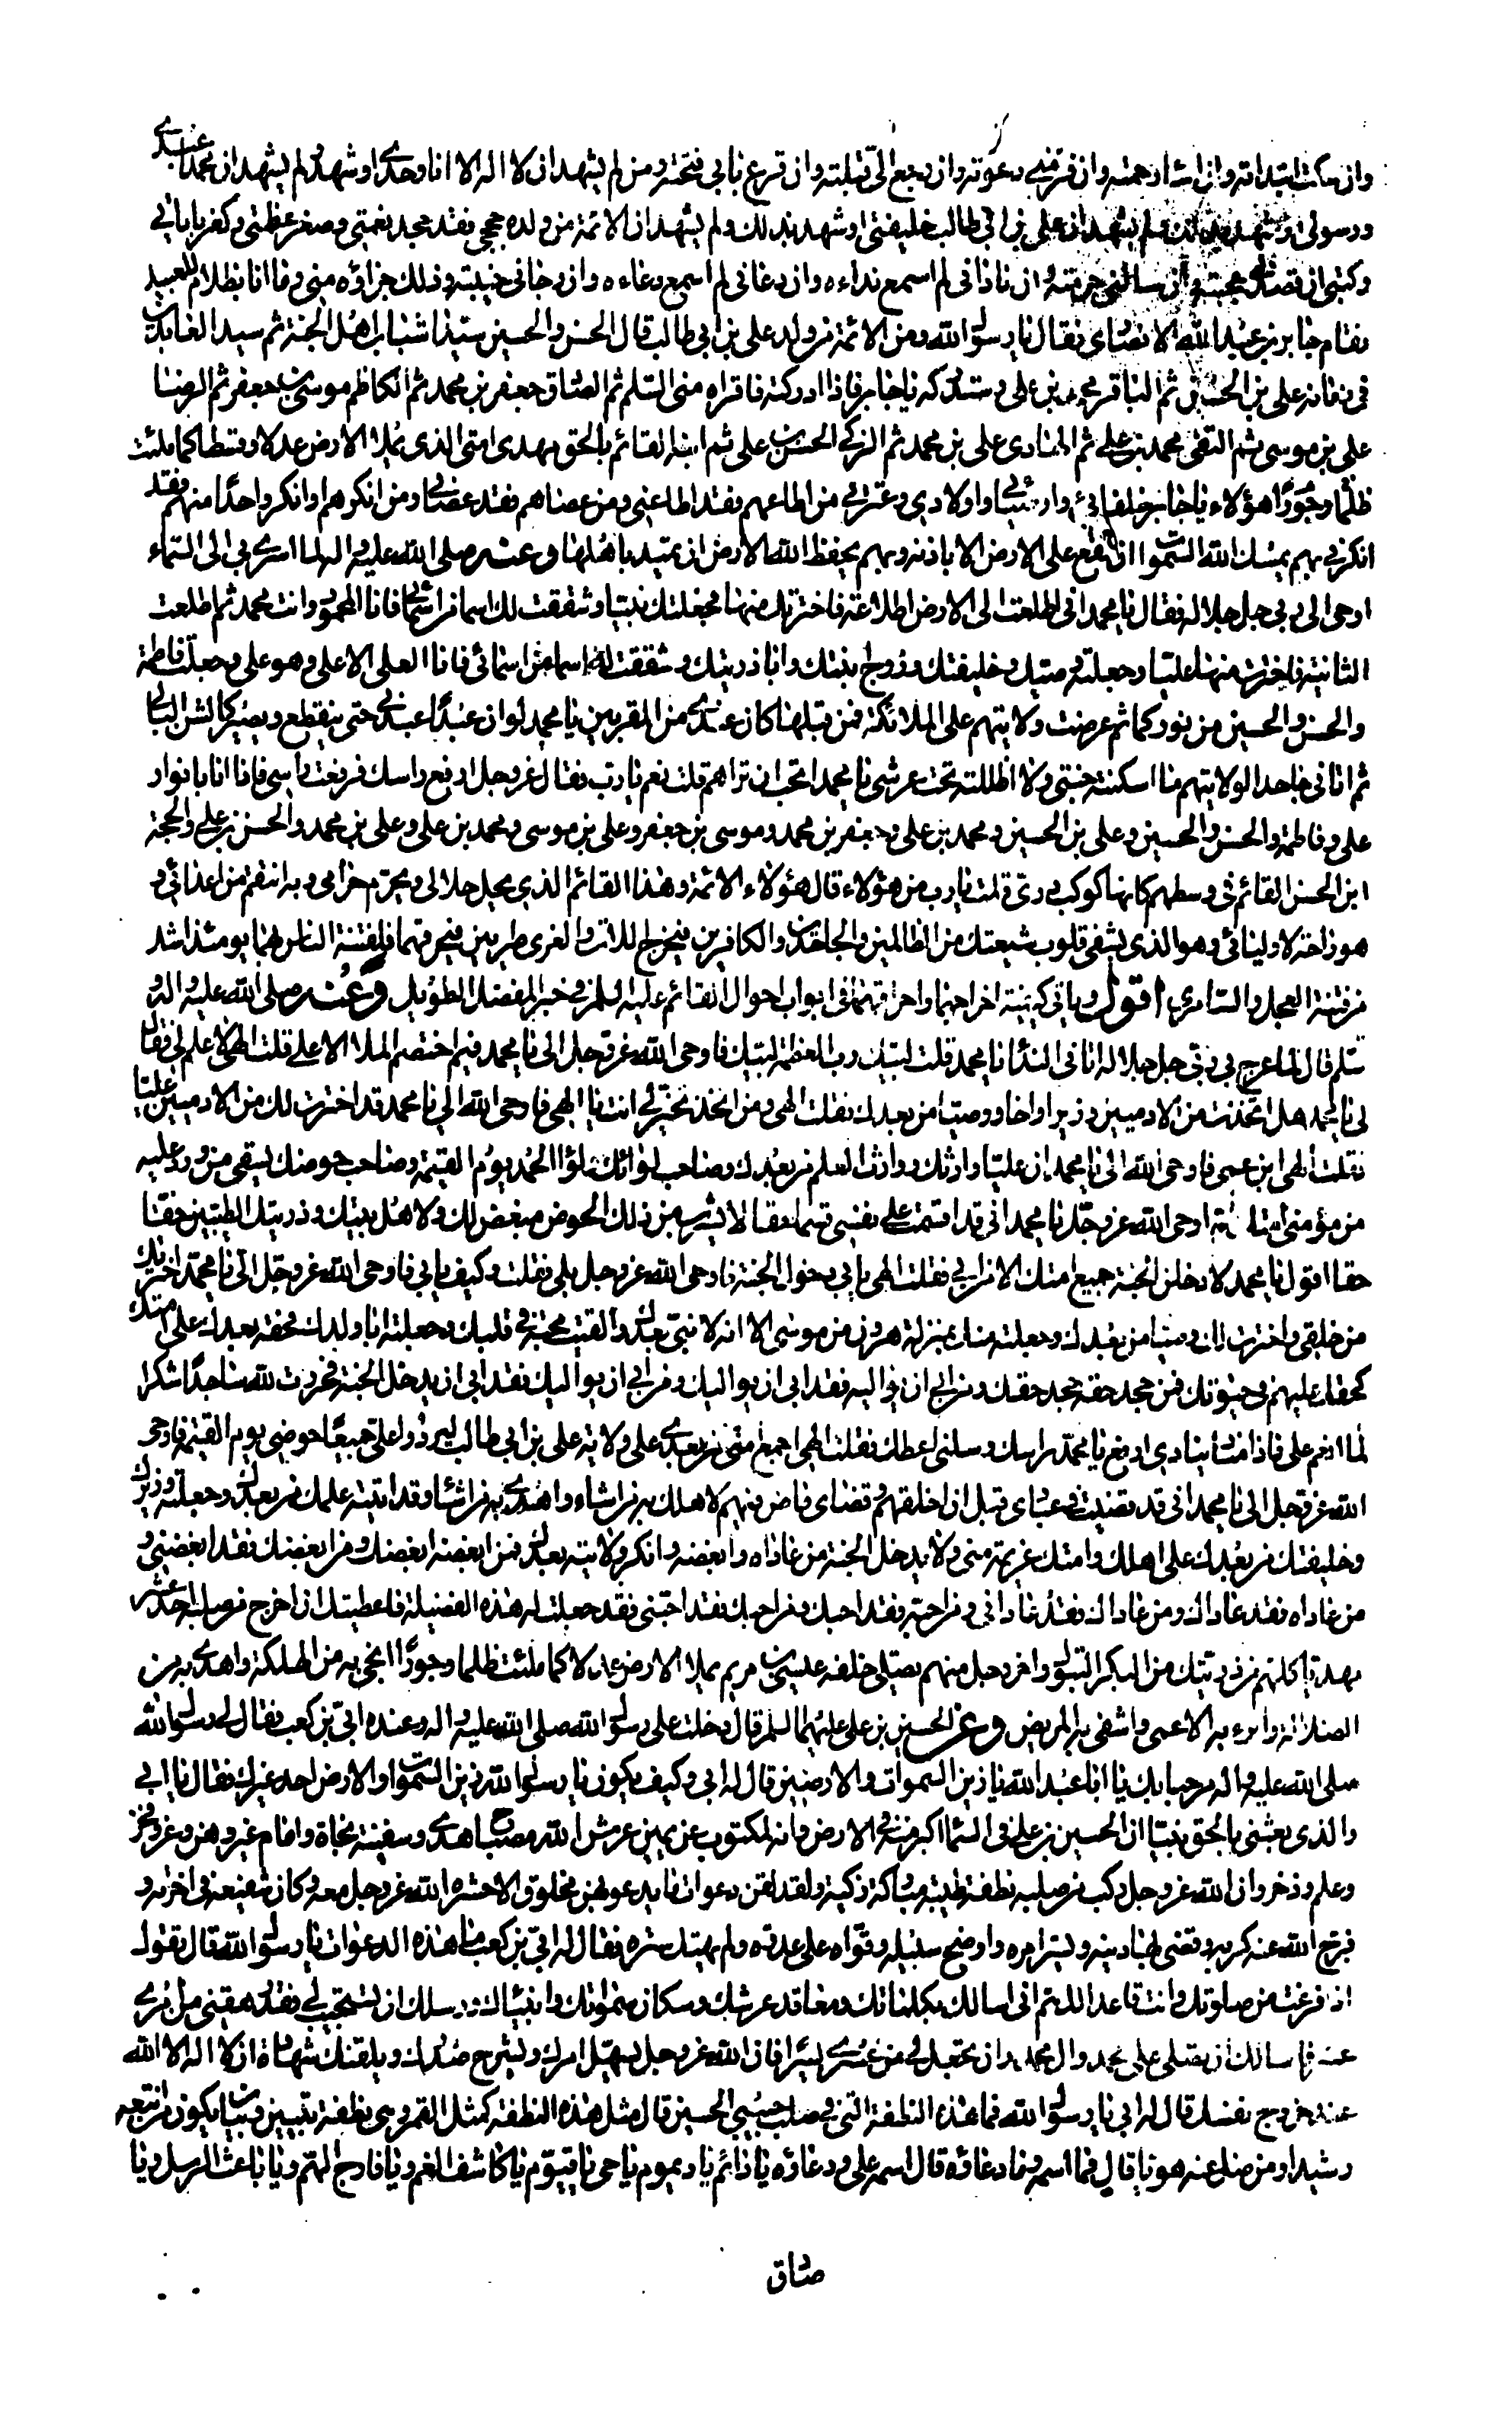 وان سكت ابتدأته وان اساء رحمته وان فر مني دعوته وان رجع الي قبلته وان قرع بابي فتحته ومن لم يشهد ان لا اله الا انا وحدي او شهد ولم يشهد ان محمدا عبدي
ورسولي او شهد بذلك ولم يشهد ان علي بن ابي طالب خليفتي او شهد بذلك ولم يشهد ان الائمة من ولده حججي فقد جحد نعمتي وصغر عظمتي وكفر باياتي
وكتبي ان قصدني حجبته وان سالني حرمته وان ناداني لم اسمع نداءه وان دعاني لم اسمع دعاءه وان رجاني خيبته وذلك جزاؤه مني وما انا بظلام للعبيد
فقام جابر بن عبد الله الانصاري فقال يا رسول الله ومن الائمة من ولد علي بن ابي طالب قال الحسن والحسين سيدا شباب اهل الجنة ثم سيد العابدين
في زمانه علي بن الحسين ثم الباقر محمد بن علي وستدركه يا جابر فاذا ادركته فاقراه مني السلم ثم الصادق جعفر بن محمد ثم الكاظم موسى بن جعفر ثم الرضا
علي بن موسى ثم التقي محمد بن علي ثم الهادي علي بن محمد ثم الزكي الحسن بن علي ثم ابنه القائم بالحق مهدي امتي الذي يملا الارض عدلا وقسطا كما ملئت
ظلما وجورا هؤلاء يا جابر خلفائي واوصيائي واولادي وعترتي من اطاعهم فقد اطاعني ومن عصاهم فقد عصاني ومن انكرهم او انكر واحدا منهم فقد
انكرني بهم يمسك الله السموات ان تقع على الارض الا باذنه وبهم يحفظ الله الارض ان تميد باهلها وعنه صلى الله عليه واله لما اسري بي الى السماء
اوحى الي ربي جل جلاله فقال يا محمد اني اطلعت الى الارض اطلاعة فاخترتك منها فجعلتك نبيا وشققت لك اسما من اسمائي فانا المحمود وانت محمد ثم اطلعت
الثانية فاخترت منها عليا وجعلته وصيك وخليفتك وزوج ابنتك وابا ذريتك وشققت له اسما من اسمائي فانا العلي الاعلى وهو علي وجعلت فاطمة
والحسن والحسين من نوركما ثم عرضت ولايتهم على الملائكة فمن قبلها كان عندي من المقربين يا محمد لو ان عبدا عبدني حتى ينقطع ويصير كالشن البالي
ثم اتاني جاحدا لولايتهم ما اسكنته جنتي ولا اظللته تحت عرشي يا محمد اتحب ان تراهم قلت نعم يا رب فقال عز وجل ارفع راسك فرفعت راسي فاذا انا بانوار
علي وفاطمة والحسن والحسين وعلي بن الحسين ومحمد بن علي وجعفر بن محمد وموسى بن جعفر وعلي بن موسى ومحمد بن علي وعلي بن محمد والحسن بن علي والحجة
ابن الحسن القائم في وسطهم كانها كوكب دري قلت يا رب من هؤلاء قال هؤلاء الائمة وهذا القائم الذي يحل حلالي ويحرم حرامي وبه انتقم من اعدائي و
هو راحة لاوليائي وهو الذي يشفي قلوب شيعتك من الظالمين والجاحدين والكافرين فيخرج اللات والعزى طريين فيحرقهما فلفتنة الناس بهما يومئذ اشد
من فتنة العجل والسامري اقول وياتي كيفية اخراجهما واحراقهما في ابواب احوال القائم عليه السلم في خبر المفضل الطويل وعنه صلى الله عليه واله و
سلم قال لما عرج بي ربي جل جلاله اتاني النداء يا محمد قلت لبيك رب العظمة لبيك فاوحى الله عز وجل الي يا محمد فيم اختصم الملا الاعلى قلت الهي لا علم لي فقال
لي يا محمد هل اتخذت من الادميين وزيرا واخا ووصيا من بعدك فقلت الهي ومن اتخذ تخير لي انت يا الهي فاوحى الله الي يا محمد قد اخترت لك من الادميين عليا
فقلت الهي ابن عمي فاوحى الله الي يا محمد ان عليا وارثك ووارث العلم من بعدك وصاحب لوائك لواء الحمد يوم القيمة وصاحب حوضك يسقي من ورد عليه
من مؤمني امتك ثم اوحى الله عز وجل يا محمد اني قد اقسمت على نفسي قسما حقا لا يشرب من ذلك الحوض مبغض لك ولاهل بيتك وذريتك الطيبين حقا
حقا اقول يا محمد لادخلن الجنة جميع امتك الا من ابى فقلت الهي يابى دخول الجنة فاوحى الله عز وجل بلى فقلت وكيف يابى فاوحى الله عز وجل الي يا محمد اخترتك
من خلقي واخترت لك وصيا من بعدك وجعلته منك بمنزلة هرون من موسى الا انه لا نبي بعدك والقيت محبته في قلبك وجعلته ابا ولدك فحقه بعدك على امتك
كحقك عليهم في حيوتك فمن جحد حقه جحد حقك ومن ابى ان يواليه فقد ابى ان يواليك ومن ابى ان يواليك فقد ابى ان يدخل الجنة فخررت لله ساجدا شكرا
لما انعم علي فاذا مناد ينادي ارفع يا محمد راسك وسلني اعطك فقلت الهي اجمع امتي من بعدي على ولاية علي بن ابي طالب ليردوا علي جميعا حوضي يوم القيمة فاوحى
الله عز وجل الي يا محمد اني قد قضيت في عبادي قبل ان اخلقهم وقضائي ماض فيهم لاهلك به من اشاء واهدي به من اشاء وقد اتيته علمك من بعدك وجعلته وزيرك
وخليفتك من بعدك على اهلك وامتك عزيمة مني ولا يدخل الجنة من عاداه وابغضه وانكر ولايته بعدك فمن ابغضه ابغضك ومن ابغضك فقد ابغضني و
من عاداه فقد عاداك ومن عاداك فقد عاداني ومن احبه فقد احبك ومن احبك فقد احبني وقد جعلت له هذه الفضيلة فاعطيتك ان اخرج من صلبه احد عشر
مهديا كلهم من ذريتك من البكر البتول واخر رجل منهم يصلي خلفه عيسى بن مريم يملا الارض عدلا كما ملئت ظلما وجورا انجي به من الهلكة واهدي به من
الضلالة وابرء به الاعمى واشفي به المريض وعن الحسين بن علي عليهما السلم قال دخلت على رسول الله صلى الله عليه واله وعنده ابي بن كعب فقال لي رسول الله
صلى الله عليه واله مرحبا بك يا ابا عبد الله يا زين السموات والارضين قال له ابي وكيف يكون يا رسول الله زين السموات والارض احد غيرك فقال يا ابي
والذي بعثني بالحق نبيا ان الحسين بن علي في السماء اكبر منه في الارض وانه لمكتوب عن يمين عرش الله مصباح هدى وسفينة نجاة وامام غير وهن وعز وفخر
وعلم وذخر وان الله عز وجل ركب في صلبه نطفة طيبة مباركة زكية ولقد لقن دعوات ما يدعو بهن مخلوق الا حشره الله عز وجل معه وكان شفيعه في اخرته و
فرج الله عنه كربه وقضى بها دينه ويسر امره واوضح سبيله وقواه على عدوه ولم يهتك ستره فقال له ابي بن كعب ما هذه الدعوات يا رسول الله قال تقول
اذا فرغت من صلوتك وانت قاعد اللهم اني اسالك بكلماتك ومعاقد عرشك وسكان سمواتك وانبيائك ورسلك ان تستجيب لي فقد رهقني من امري
عسر فاسالك ان تصلي على محمد وال محمد وان تجعل لي من عسري يسرا فان الله عز وجل يسهل امرك ويشرح صدرك ويلقنك شهادة ان لا اله الا الله
عند خروج نفسك قال له ابي يا رسول الله فما هذه النطفة التي في صلب حبيبي الحسين قال مثل هذه النطفة كمثل القمر وهي نطفة تبيين وبيان يكون من اتبعه
رشيدا ومن ضل عنه هويا قال فما اسمه وما دعاؤه قال اسمه علي ودعاؤه يا دائم يا ديموم يا حي يا قيوم يا كاشف الغم ويا فارج الهم ويا باعث الرسل ويا
صادق